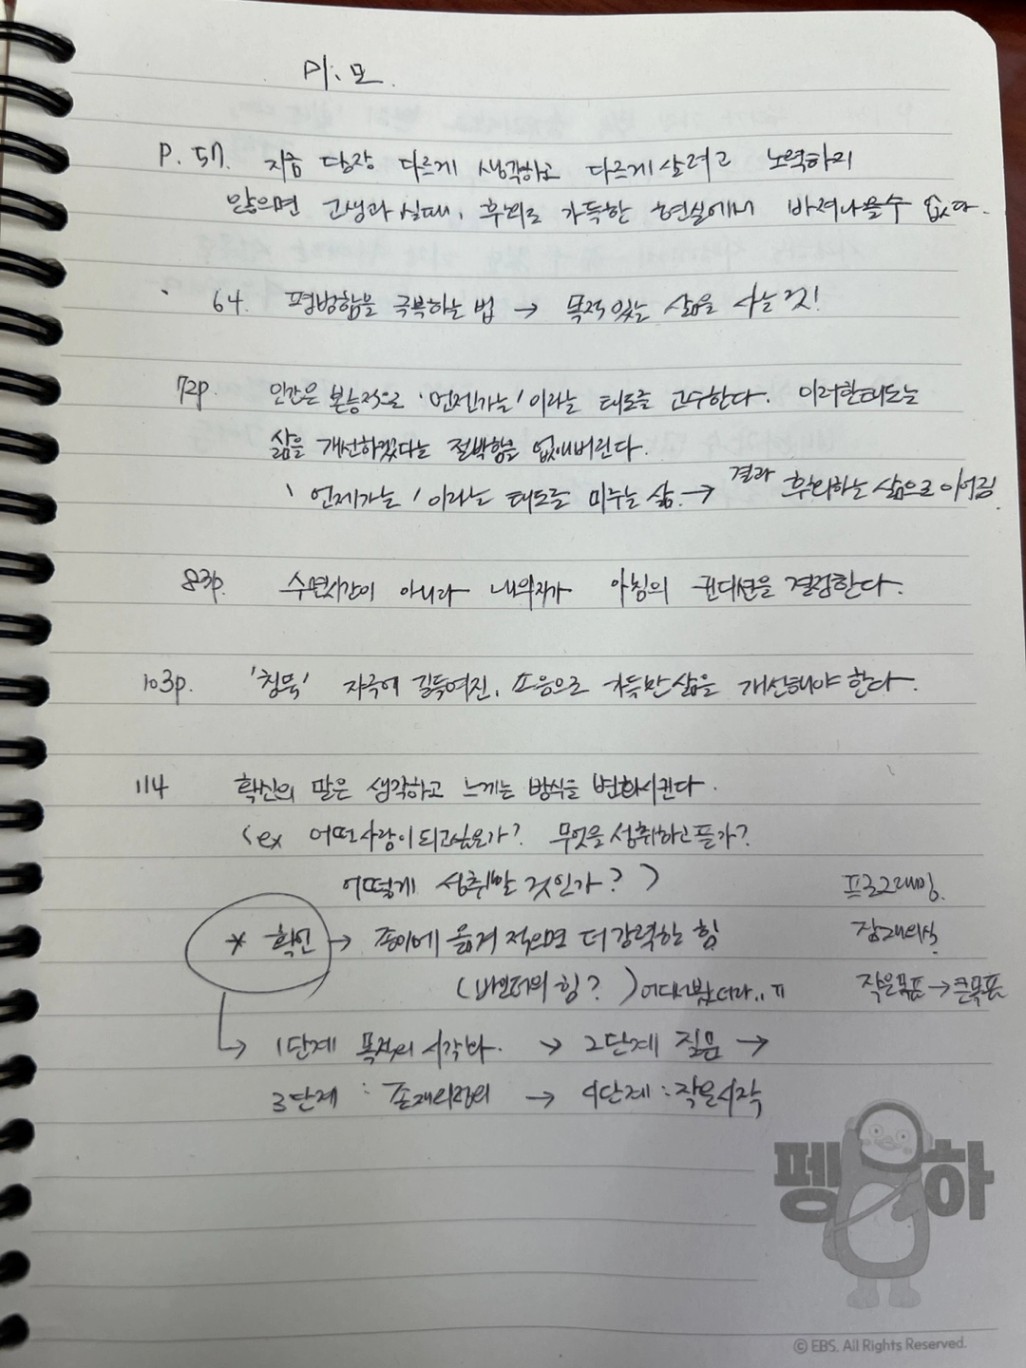 미.모.
P. 57. 지금 당장 다르게 생각하고 다르게 살려고 노력하지
않으면 고생과 실패, 후회로 가득한 현실에서 빠져나올수 없다.
64. 평범함을 극복하는 법 → 목적 있는 삶을 사는 것!
72p. 인간은 본능적으로 '언젠가는' 이라는 태도를 고수한다. 이러한태도는
삶을 개선하겠다는 절박함을 없애버린다.
'언젠가는' 이라는 태도로 미루는 삶. → 결과 후회하는 삶으로 이어짐.
83p. 수면시간이 아니라 내의지가 아침의 컨디션을 결정한다.
103p. '침묵' 자극에 길들여진, 소음으로 가득한 삶을 개선해야 한다.
114 확신의 말은 생각하고 느끼는 방식을 변화시킨다.
(ex 어떤사람이 되고싶은가? 무엇을 성취하고픈가?
어떻게 성취할 것인가?)
프로그래밍.
* 확언 → 종이에 옮겨 적으면 더 강력한 힘
잠재의식.
(바인더의 힘?) 어디서봤더라.. ㅠ
작은목표 → 큰목표
↳ 1단계 목적의 시각화. → 2단계 질문 →
3단계 : 존재의정의 → 4단계 : 작은시작
펭하
© EBS. All Rights Reserved.